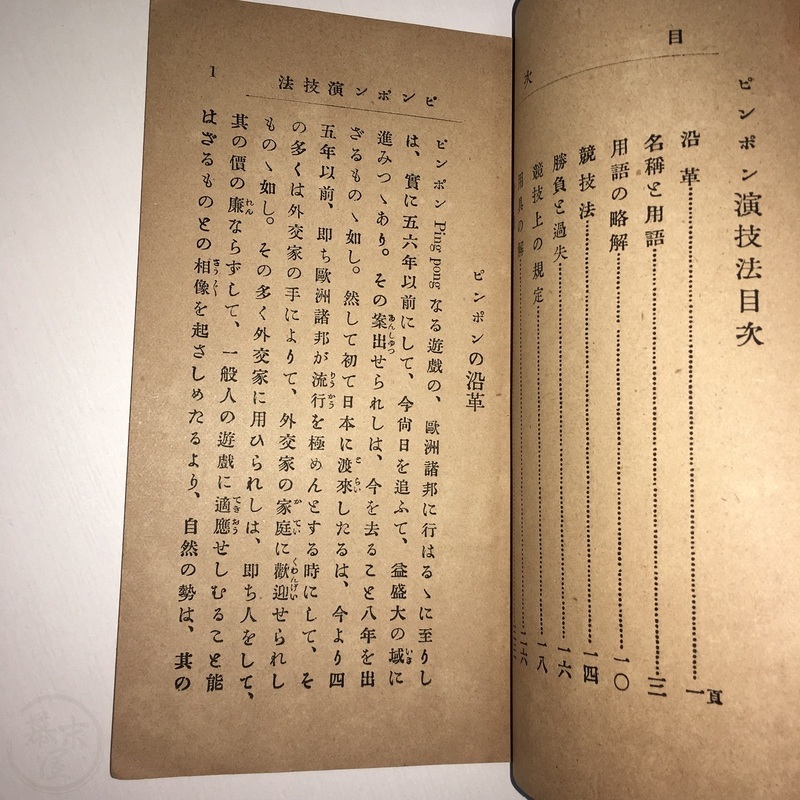 目
次
ピンポン演技法目次
沿革………一頁
名稱と用語………三
用語の略解………一〇
競技法………一四
勝負と過失………一六
競技上の規定………一八
用具の解………二六
ピンポン演技法
1
ピンポンの沿革
ピンポン Ping pong なる遊戲の、歐洲諸邦に行はるゝに至りし
は、實に五六年以前にして、今尙日を追ふて、益盛大の域に
進みつゝあり。その案出せられしは、今を去ること八年を出
ざるものゝ如し。然して初て日本に渡來したるは、今より四
五年以前、即ち歐洲諸邦が流行を極めんとする時にして、そ
の多くは外交家の手によりて、外交家の家庭に歡迎せられし
ものゝ如し。その多く外交家に用ひられしは、即ち人をして、
其の價の廉ならずして、一般人の遊戲に適應せしむること能
はざるものとの相像を起さしめたるより、自然の勢は、其の